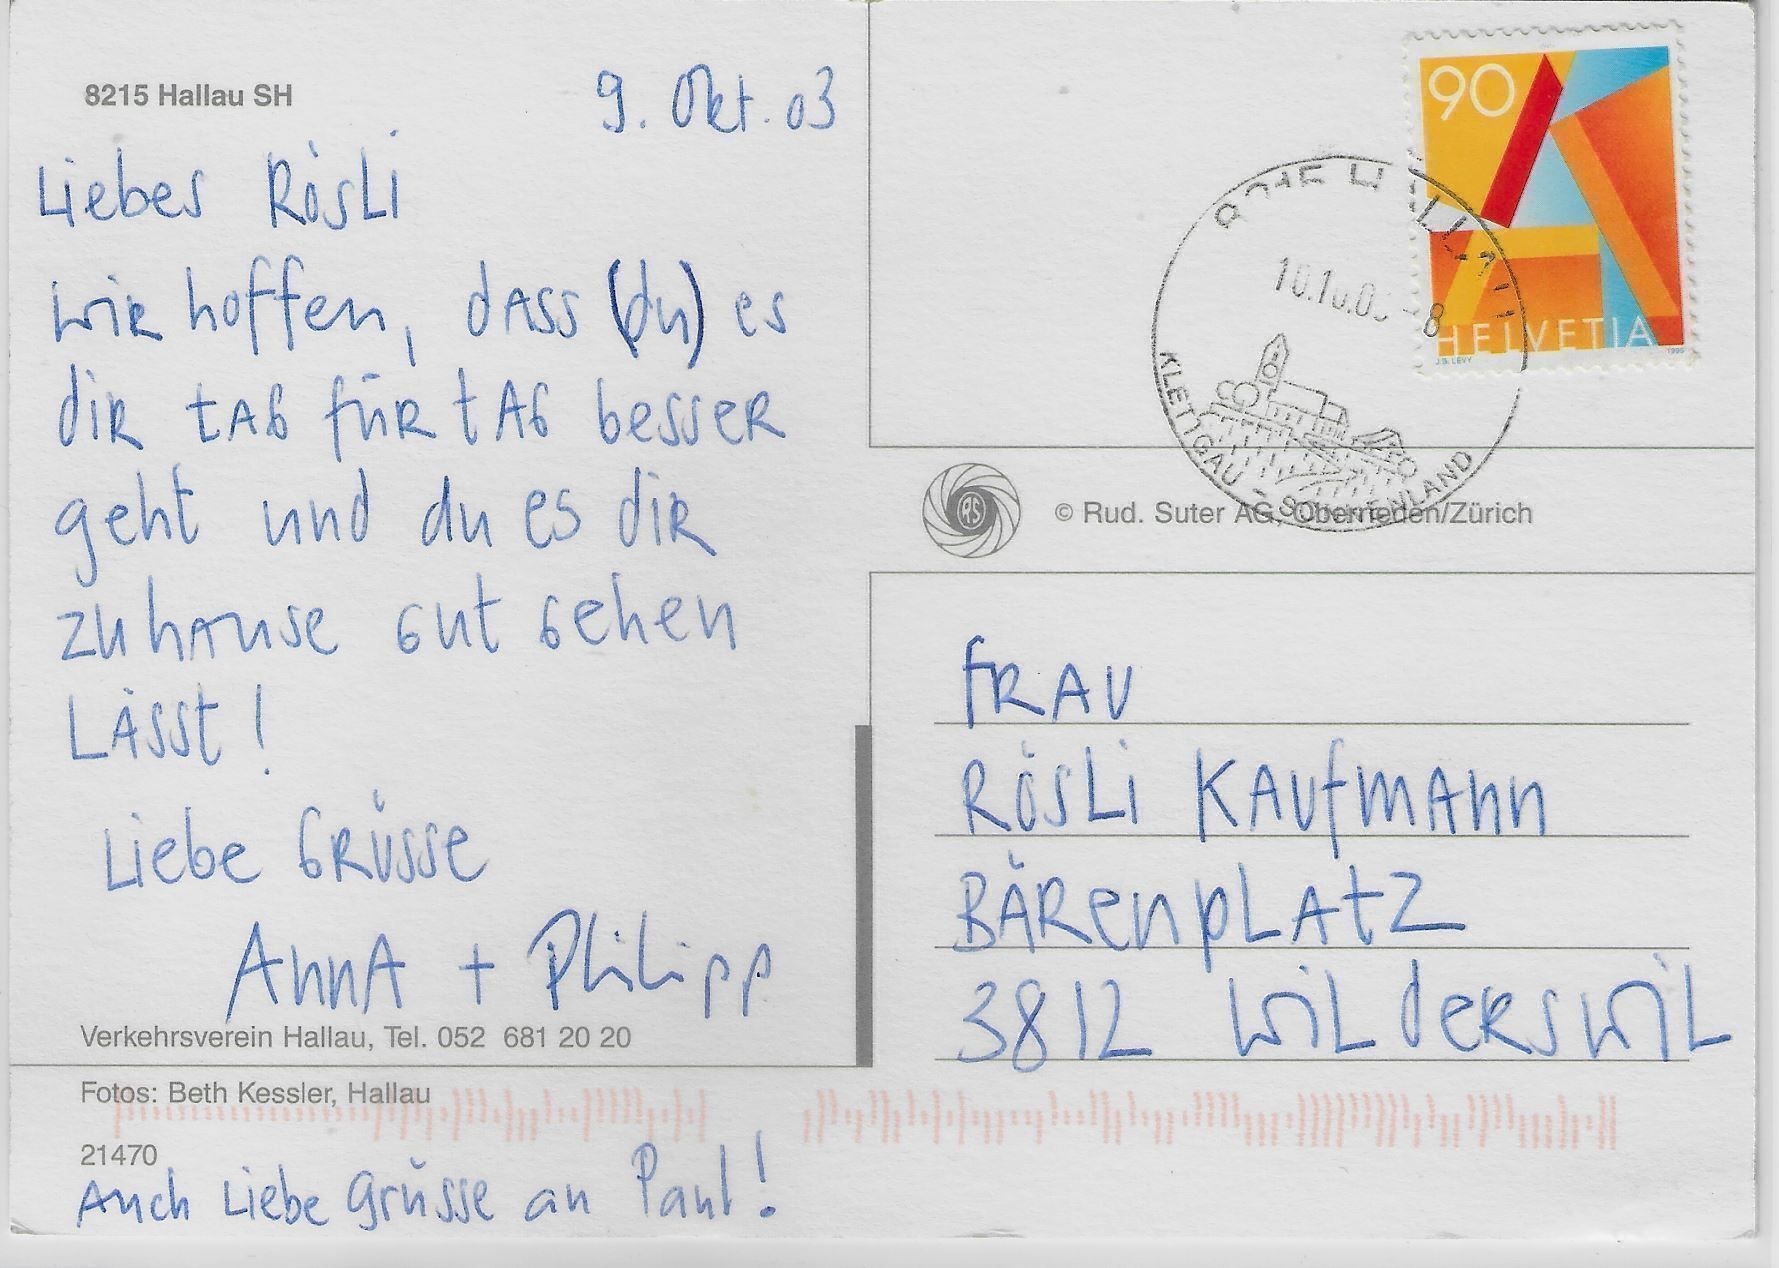 8215 Hallau SH
9. Okt. 03
Liebes Rösli
wir hoffen, dass (du) es
dir tag für tag besser
geht und du es dir
zuhause gut gehen
lässt!
Liebe Grüsse
Anna + Philipp
Verkehrsverein Hallau, Tel. 052 681 20 20
Fotos: Beth Kessler, Hallau
21470
Auch Liebe Grüsse an Paul!
90
HELVETIA
J.B. LEVY
1995
-8
KLETTGAU
RS
© Rud. Suter AG, Oberrieden/Zürich
Frau
Rösli Kaufmann
Bärenplatz
3812 Wilderswil